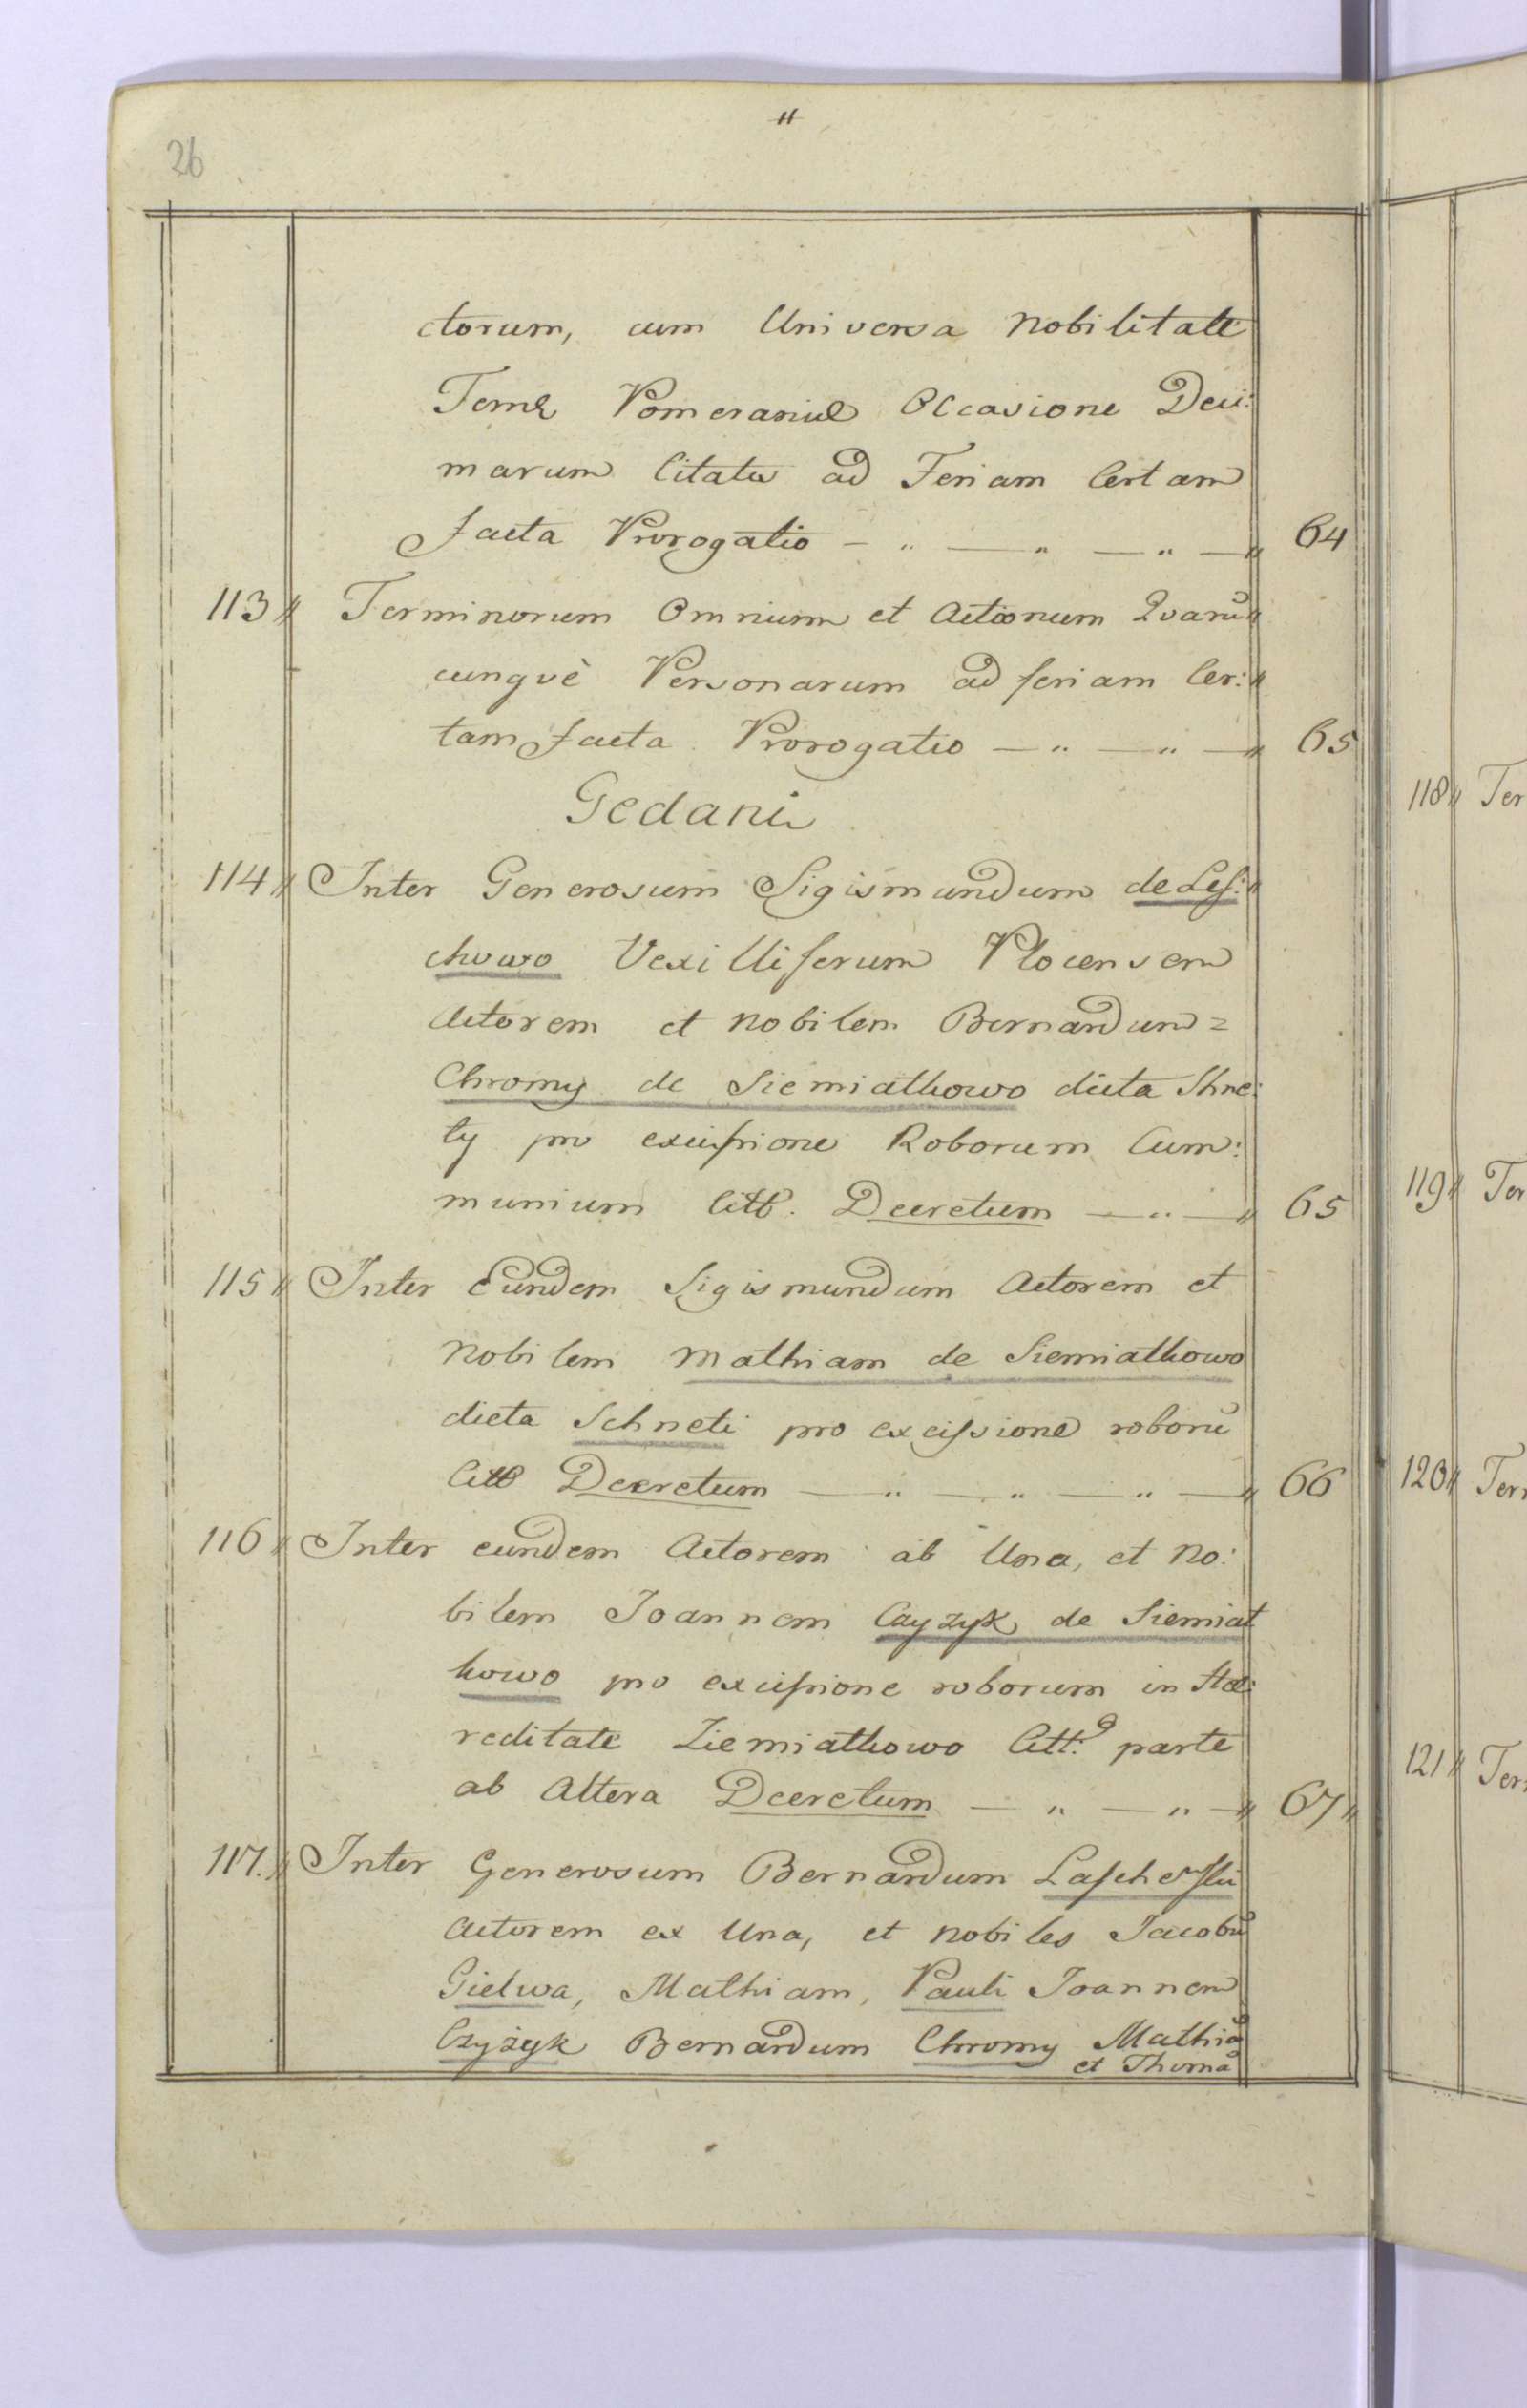 26
"
ctorum, cum Universa Nobilitate
Terræ Pomeraniæ Occasione Deci:
marum Citata ad Feriam Certam
facta Prorogatio — " — " — " — " 64
113 " Terminorum Omnium et Actionum Quarū "
cunqvè Personarum ad feriam Cer: "
tam facta Prorogatio — " — " — " 65
Gedani
114 " Inter Generosum Sigismundum de Les: "
chowo Vexilliferum Plocensem
Actorem et Nobilem Bernardum =
Chromy de Siemiathowo dicta Shne:
ty pro excissione Roborum Cum:
munium Citt. Decretum — " — " 65
115 " Inter Eundem Sigismundum Actorem et
Nobilem Mathiam de Siemiathowo
dicta Schneti pro excissione roborū
Citt Decretum — " — " — " — " 66
116 " Inter eundem Actorem ab Una, et No:
bilem Joannem Czyzyk de Siemiat
howo pro excissione roborum in Hæ:
reditate Ziemiathowo Citt: parte
ab Altera Decretum — " — " — " 67 "
117. " Inter Generosum Bernardum
Actorem ex Una, et Nobiles Jacobū
Gielwa, Mathiam, Pauli Joannem
Czyżyk Bernardum Chromy Mathiā
et Thomā
118 " Ter
119 " Ter
120 " Ter
121 " Ter